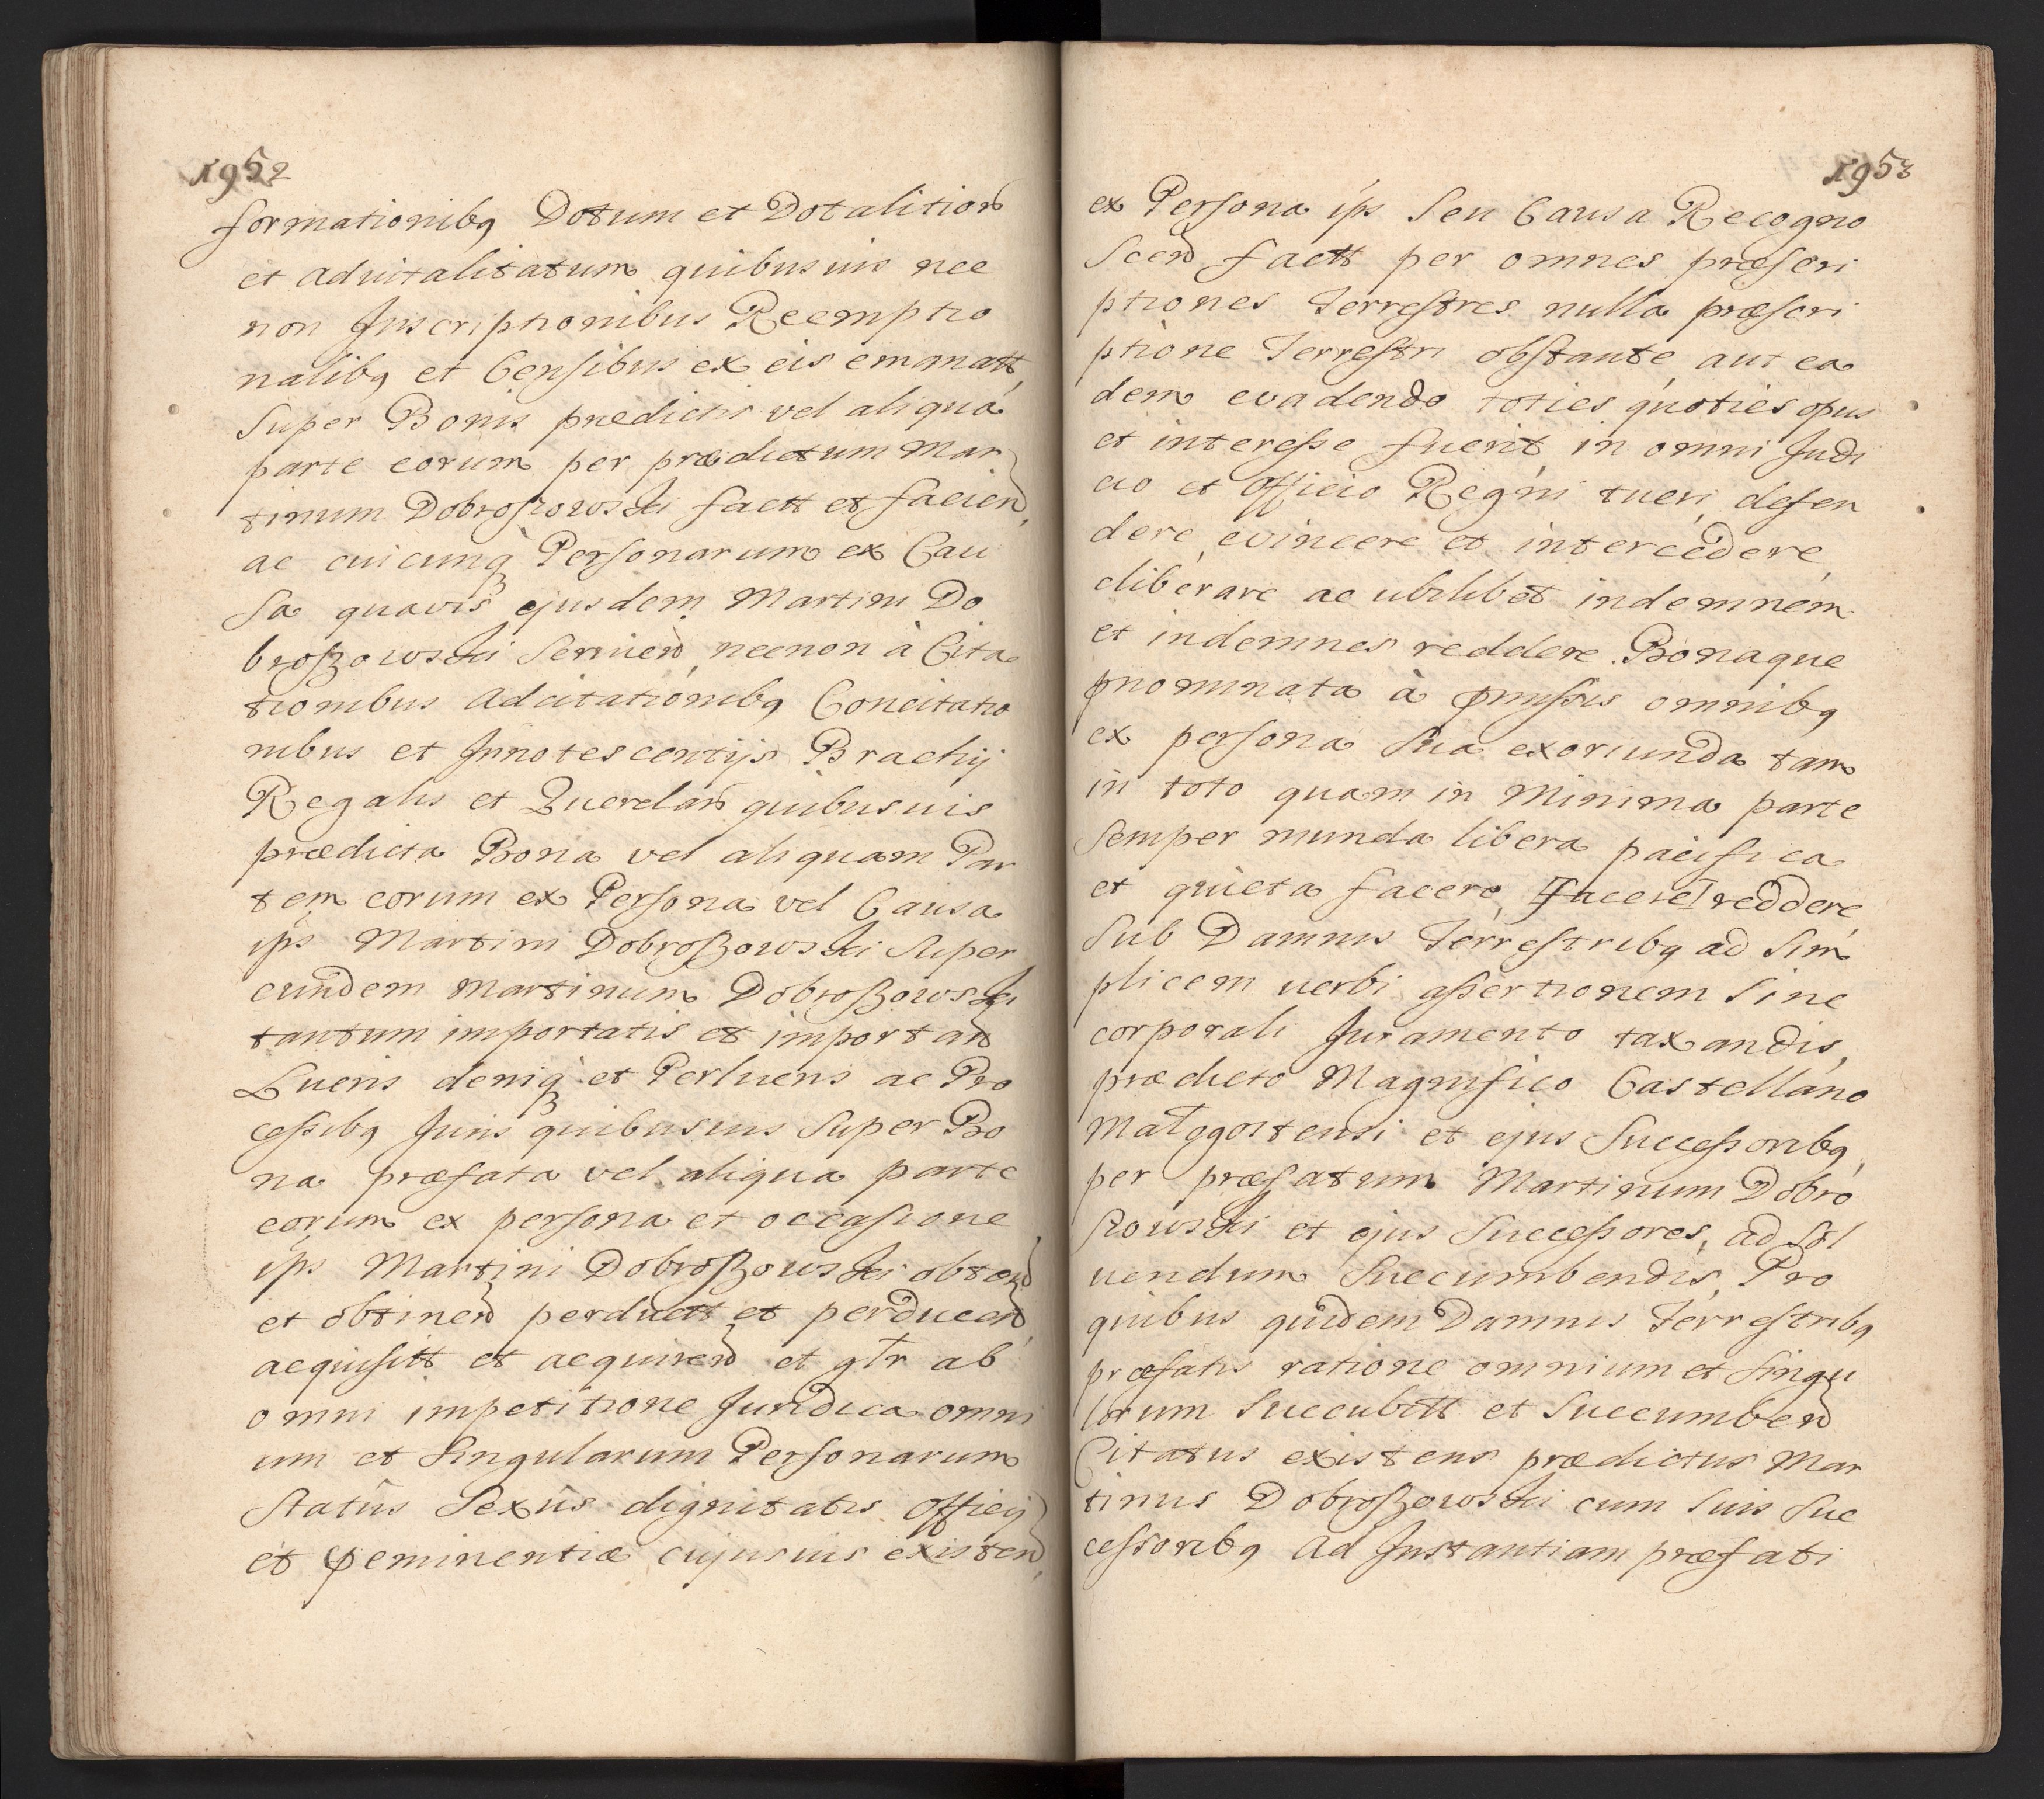 1952
formationibq Dotum et Dotalitior
et aduitalitatum quibusuis nec
non Inscriptionibus Reemptio
nalibq et Censibus ex eis emanatt,
Super Bonis prædictis vel aliqua
parte eorum per prædictum Mar
tinum Dobroszowski factt et faciend,
ac cuicunq Personarum ex Cau
sa quavis ejusdem Martini Do
broszowski Seruien, necnon à Cita
tionibus Adcitationibq Concitatio
nibus et Innotescentijs Brachij
Regalis et Querelar quibusuis
prædicta Bona vel aliquam Par
tem eorum ex Persona vel Causa
ips Martini Dobroszowski Super
eundem Martinum Dobroszowski
tantum importatis et importand
Lueris deniq et Perlueris ac Pro
cessibq Juris quibusuis Super Bo
na præfata vel aliqua parte
eorum ex persona et occasione
ips Martini Dobroszowski obtend
et obtinend perductt et perducend,
acquisitt et acquirend et gtr ab
omni impetitione Juridica omni
um et Singularum Personarum
Statûs Sexûs dignitatis Officij
et peminentiæ cujusuis existend,
1953
ex Persona ips Seu Causa Recogno
Scend factt per omnes præscri
ptiones Terrestres nulla præscri
ptione Terrestri obstante, aut ea
dem evadendo toties quoties opus
et interesse fuerit, in omni Judi
cio et Officio Regni tueri, defen
dere, evincere et intercedere,
eliberare ac ubilibet indemnem
et indemnes reddere. Bonaque
pnominata à pmissis omnibq
ex persona Sua exoriunda tam
in toto quam in Minima parte
Semper munda libera pacifica
et quieta facere, [facere] reddere,
Sub Damnis Terrestribq ad Sim
plicem verbi assertionem Sine
corporali Juramento taxandis,
prædicto Magnifico Castellano
Małogostensi et ejus Successoribq,
per præfatum Martinum Dobro
szowski et ejus Successores, ad Sol
uendum Succumbendis, Pro
quibus quidem Damnis Terrestribq
præfatis ratione omnium et Singu
lorum Succubitt et Succumbend
Citatus existens prædictus Mar
tinus Dobroszowski cum Suis Suc
cessoribq Ad Instantiam præfati